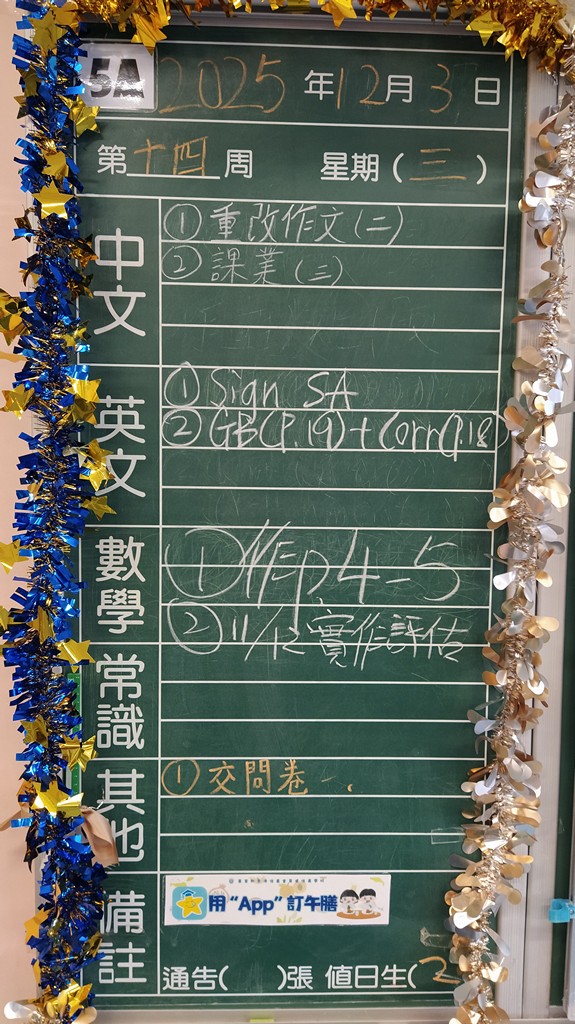 5A 2025年12月3日
第十四周 星期(三)
中文
①重改作文(二)
②課業(三)
英文
①Sign SA
②GB(P.19)+Corr(P.18)
數學
①作p4-5
②11/12實作評估
常識
其他
①交問卷
備註
用“App”訂午膳
通告( )張 值日生(2